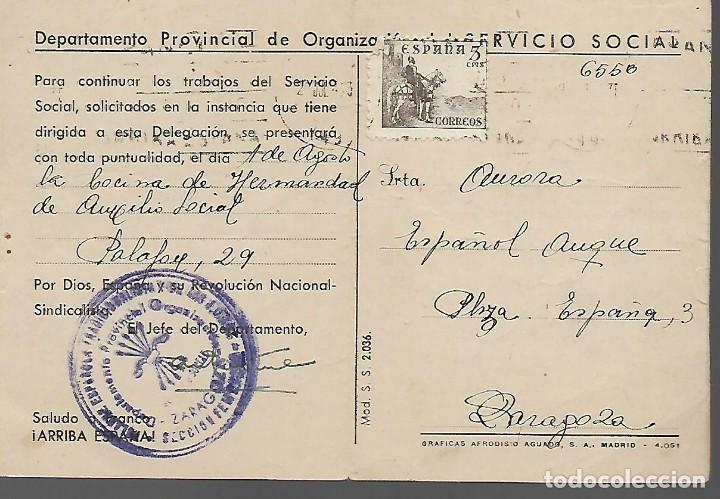 Departamento Provincial de Organiza
SERVICIO SOCIAL
ESPAÑA 5
CTS
CORREOS
6550
Para continuar los trabajos del Servicio
Social, solicitados en la instancia que tiene
dirigida a esta Delegación, se presentará
con toda puntualidad, el día 1 de Agosto
la Cocina de Hermandad
de Auxilio Social
Palafox, 29
Por Dios, España y su Revolución Nacional-
Sindicalista.
El Jefe del Departamento,
Departamento Provincial Organización
ZARAGOZA
SECCION
Saludo a Franco
¡ARRIBA ESPAÑA!
Mod. S. S. 2.036.
Srta. Aurora
Español Auque
Plaza España, 3
Zaragoza
GRAFICAS AFRODISIO AGUADO, S. A., MADRID - 4.051
todocoleccion